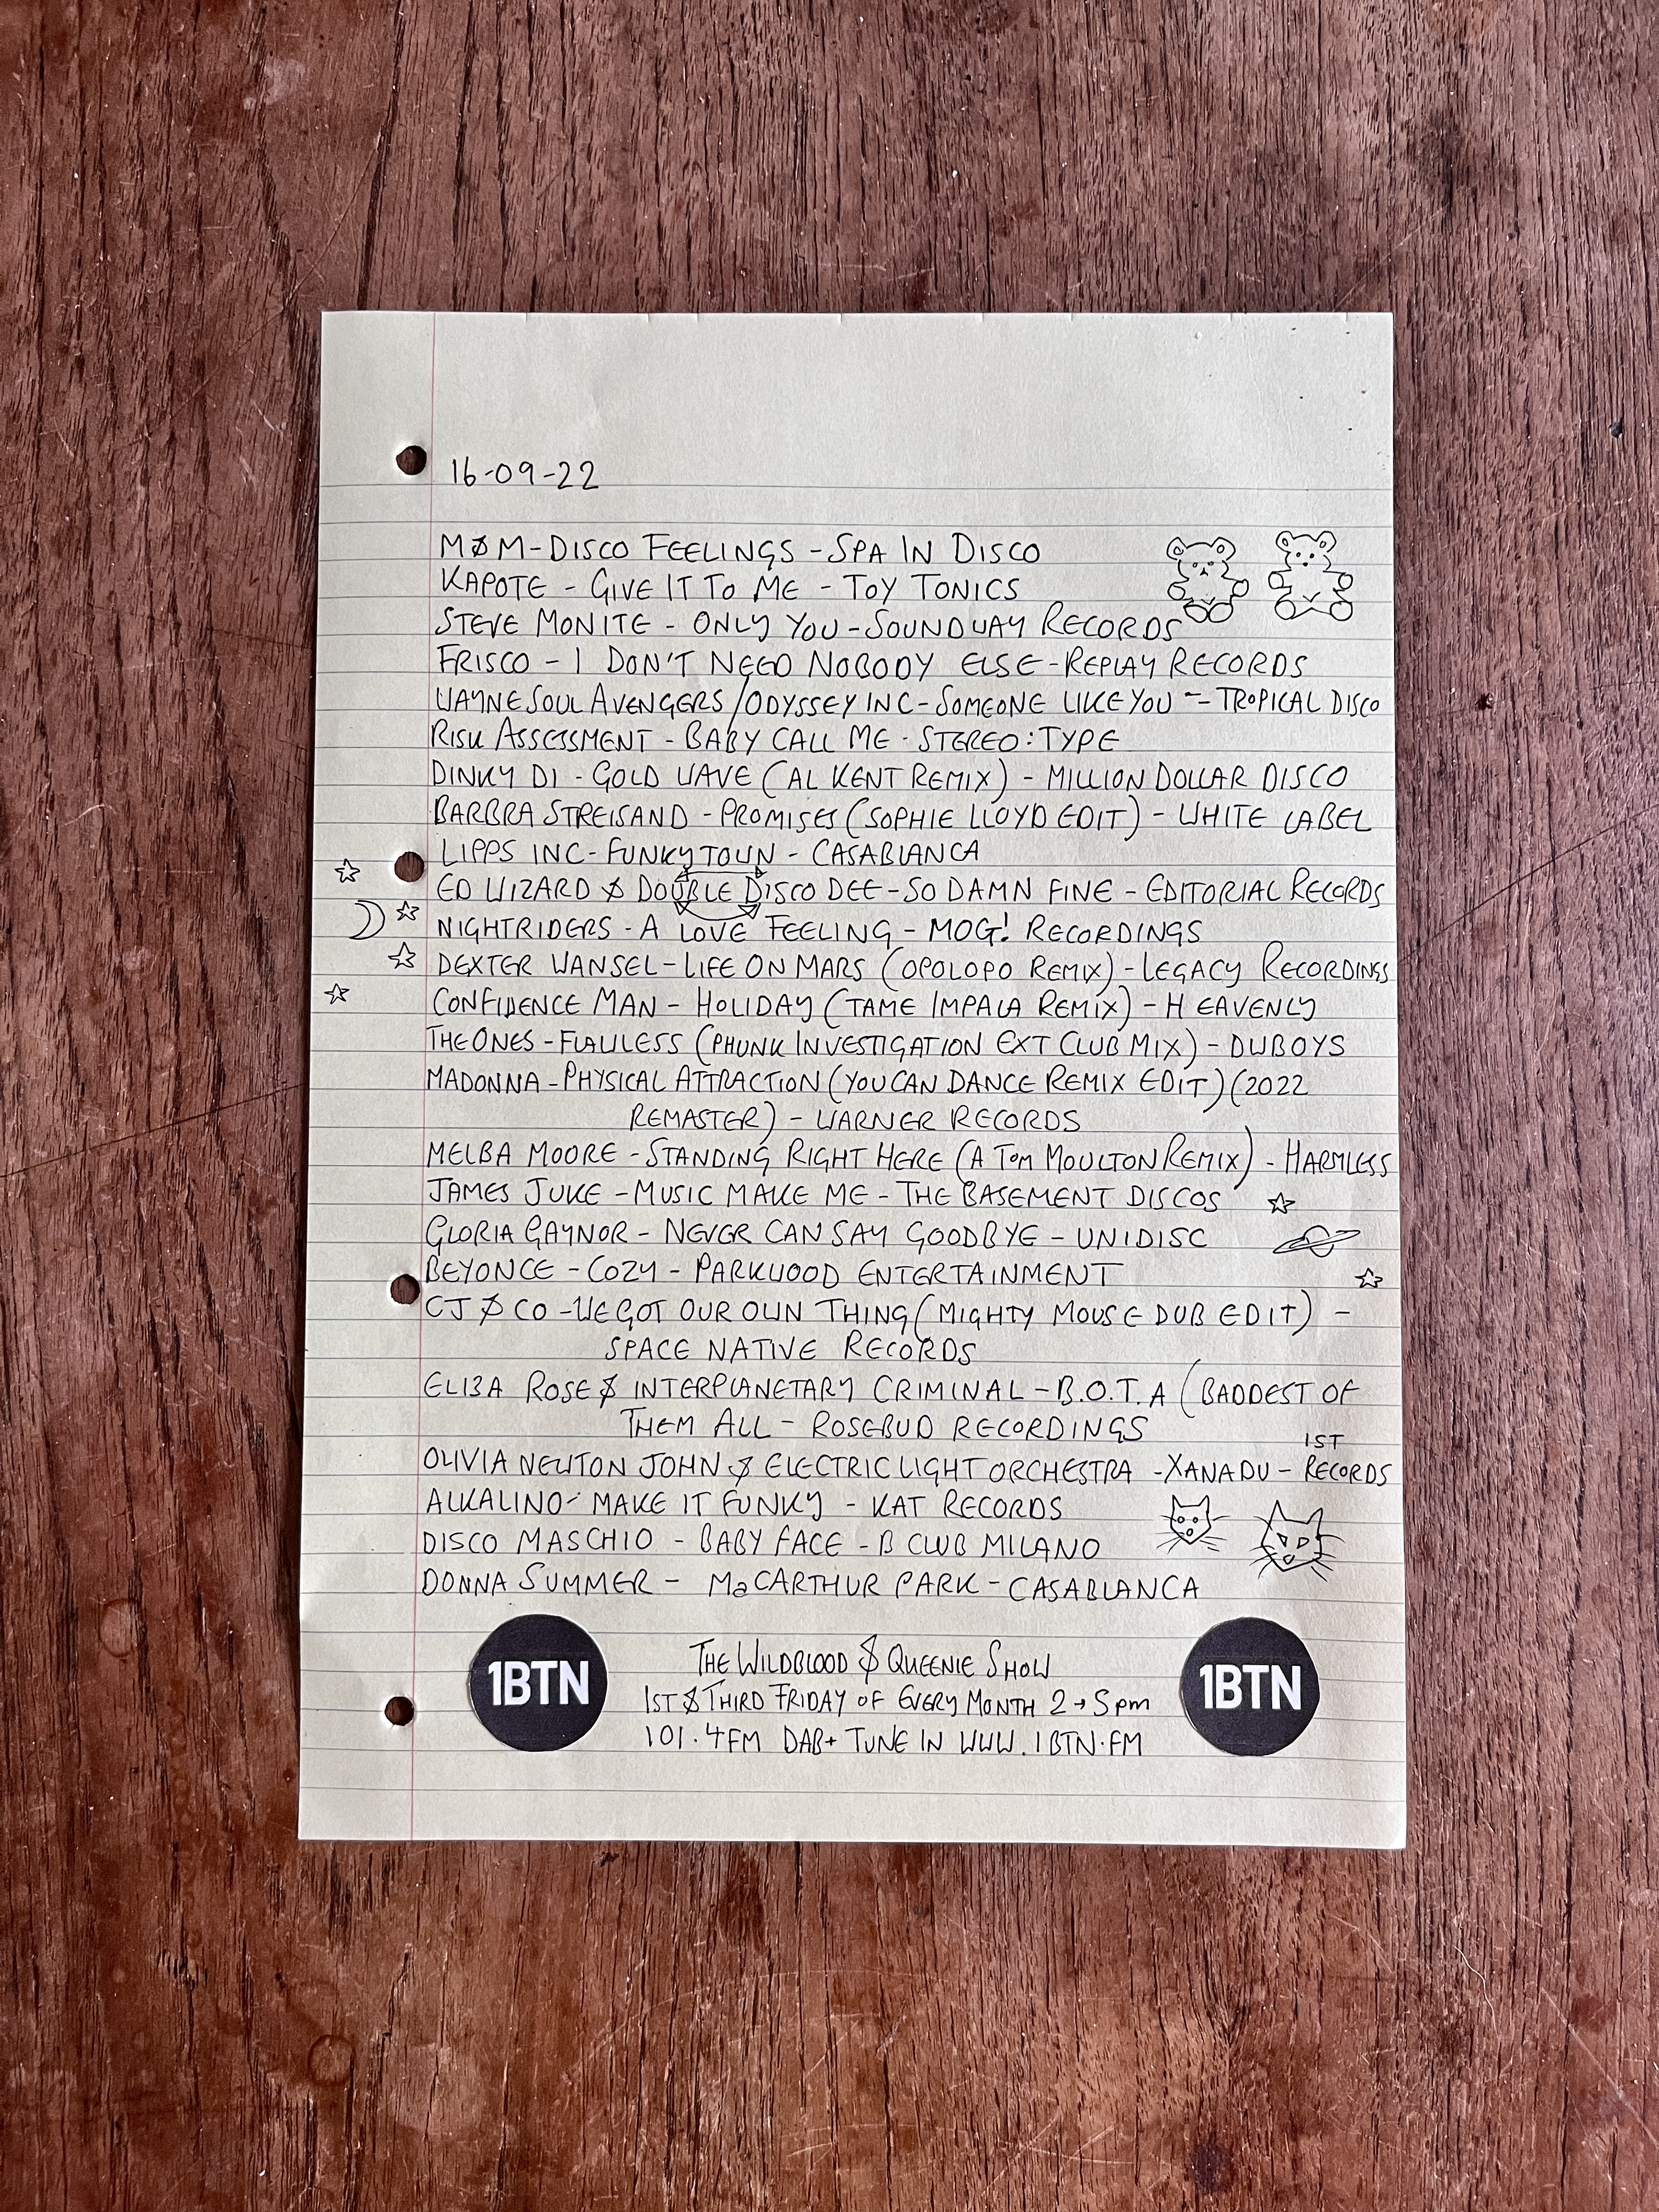 16-09-22
MØM-DISCO FEELINGS - SPA IN DISCO
KAPOTE - GIVE IT TO ME - TOY TONICS
STEVE MONITE - ONLY YOU - SOUNDWAY RECORDS
FRISCO - I DON'T NEED NOBODY ELSE - REPLAY RECORDS
WAYNE SOUL AVENGERS / ODYSSEY INC - SOMEONE LIKE YOU - TROPICAL DISCO
RISK ASSESSMENT - BABY CALL ME - STEREO:TYPE
DINKY DI - GOLD WAVE (AL KENT REMIX) - MILLION DOLLAR DISCO
BARBRA STREISAND - PROMISES (SOPHIE LLOYD EDIT) - WHITE LABEL
LIPPS INC - FUNKYTOWN - CASABLANCA
ED WIZARD & DOUBLE DISCO DEE - SO DAMN FINE - EDITORIAL RECORDS
NIGHTRIDERS - A LOVE FEELING - MOG! RECORDINGS
DEXTER WANSEL - LIFE ON MARS (OPOLOPO REMIX) - LEGACY RECORDINGS
CONFIDENCE MAN - HOLIDAY (TAME IMPALA REMIX) - HEAVENLY
THE ONES - FLAWLESS (PHUNK INVESTIGATION EXT CLUB MIX) - DUBOYS
MADONNA - PHYSICAL ATTRACTION (YOU CAN DANCE REMIX EDIT) (2022
REMASTER) - WARNER RECORDS
MELBA MOORE - STANDING RIGHT HERE (A TOM MOULTON REMIX) - HARMLESS
JAMES JUKE - MUSIC MAKE ME - THE BASEMENT DISCOS
GLORIA GAYNOR - NEVER CAN SAY GOODBYE - UNIDISC
BEYONCE - COZY - PARKWOOD ENTERTAINMENT
CJ & CO - WE GOT OUR OWN THING (MIGHTY MOUSE DUB EDIT) -
SPACE NATIVE RECORDS
ELIZA ROSE & INTERPLANETARY CRIMINAL - B.O.T.A (BADDEST OF
THEM ALL - ROSEBUD RECORDINGS
OLIVIA NEWTON JOHN & ELECTRIC LIGHT ORCHESTRA - XANADU - 1ST RECORDS
ALKALINO - MAKE IT FUNKY - KAT RECORDS
DISCO MASCHIO - BABY FACE - B CLUB MILANO
DONNA SUMMER - MaCARTHUR PARK - CASABLANCA
1BTN
THE WILDBLOOD & QUEENIE SHOW
1ST & THIRD FRIDAY OF EVERY MONTH 2→5pm
101.4FM DAB+ TUNE IN WWW.1BTN.FM
1BTN